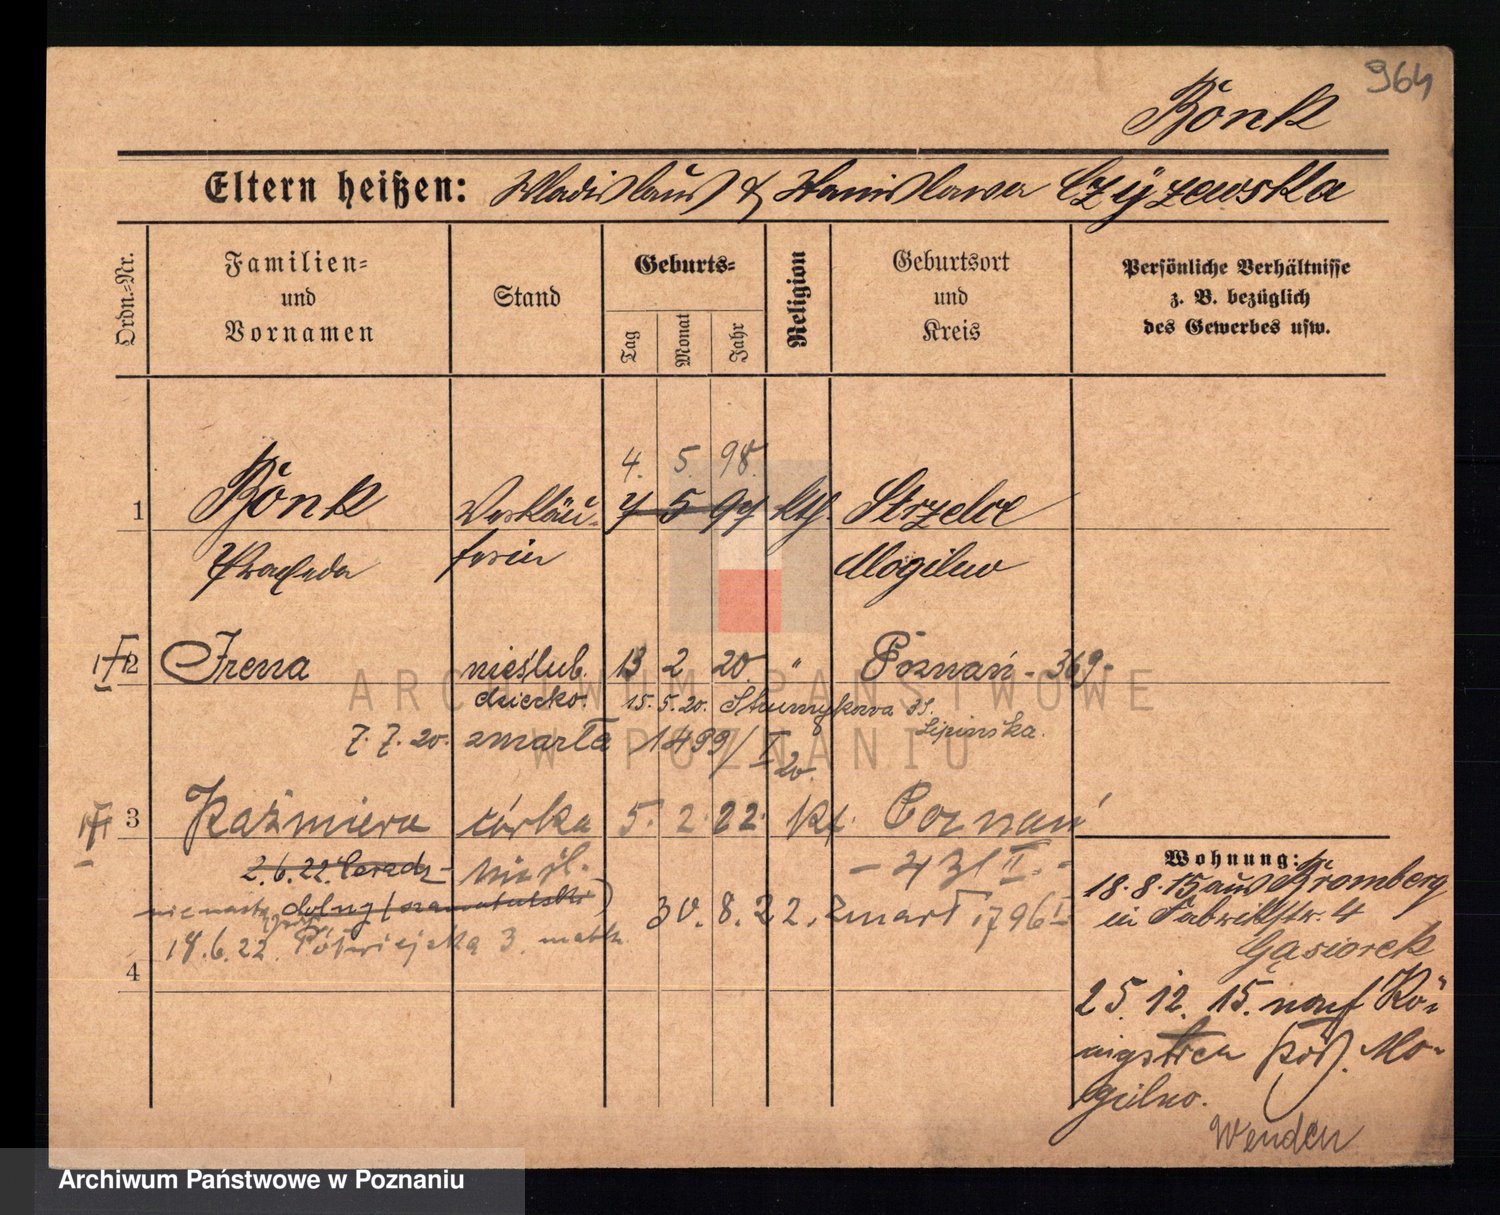 964
Bönk
Eltern heißen: Wladislaus & Stanislawa Czyzewska
Ordn.-Nr.
Familien- und Vornamen
Stand
Geburts-
Tag
Monat
Jahr
Religion
Geburtsort und Kreis
Persönliche Verhältnisse
z. B. bezüglich
des Gewerbes usw.
4. 5. 98.
1 Bönk Verkäu- 4 5 97 kth. Strzelce
Praxeda ferin Mogilno
2 Irena nieślub. 13 2 20. " Poznań - 369-
dziecko. 15.5.20. 35.
Lipinska.
7.7.20. zmarła 1499/I 20.
3 Kaźmiera córka 5. 2. 22. kt. Poznań
2.6.22. nieśl. - 431 II. -
30. 8. 22. zmarł 1796
18.6.22. Półwiejska 3.
4
Wohnung:
18.8.15 aus Bromberg
in Fabrikstr. 4
Gąsiorek
25. 12. 15. nach Kö-
nigstreu Mo-
gilno.
Wenden
ARCHIWUM PAŃSTWOWE
W POZNANIU
Archiwum Państwowe w Poznaniu